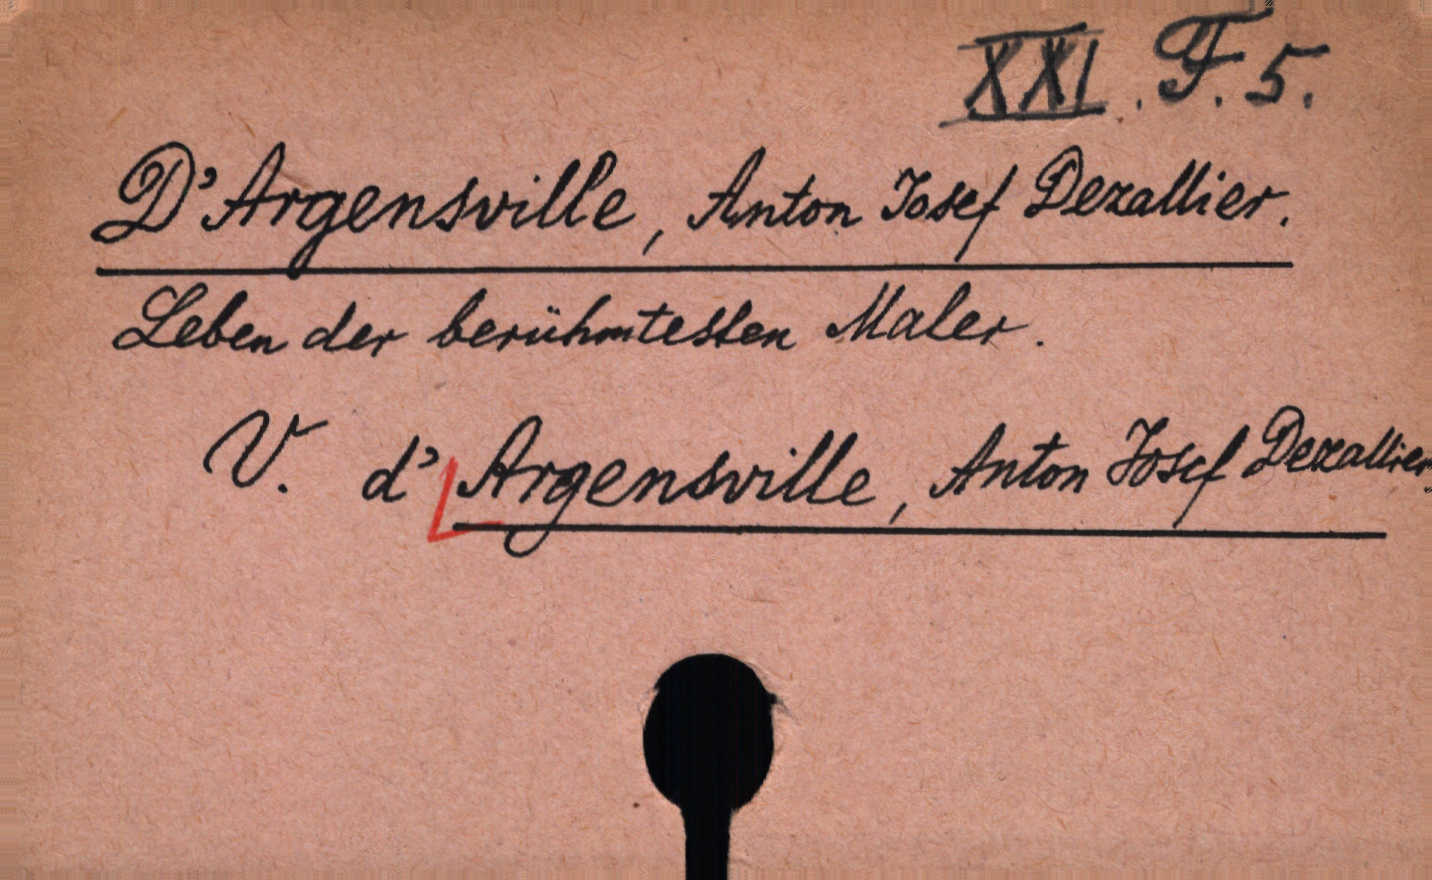 XXI. F. 5.
D'Argensville, Anton Josef Dezallier.
Leben der berühmtesten Maler.
V. d' Argensville, Anton Josef Dezallier.